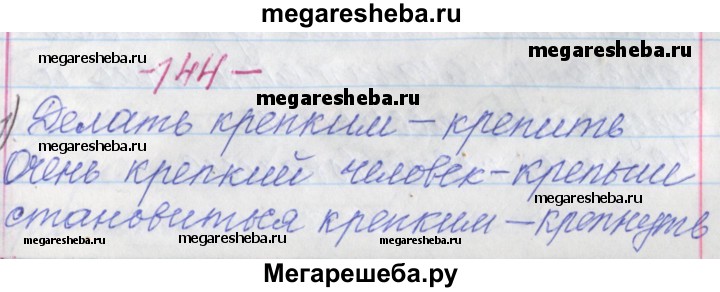 megaresheba.ru
-144-
megaresheba.ru
megaresheba.ru
megaresheba.ru
1) Делать крепким – крепить
megaresheba.ru
megaresheba.ru
Очень крепкий человек – крепыш
megaresheba.ru
megaresheba.ru
становиться крепким – крепнуть
megaresheba.ru
megaresheba.ru
megaresheba.ru
Мегарешеба.ру